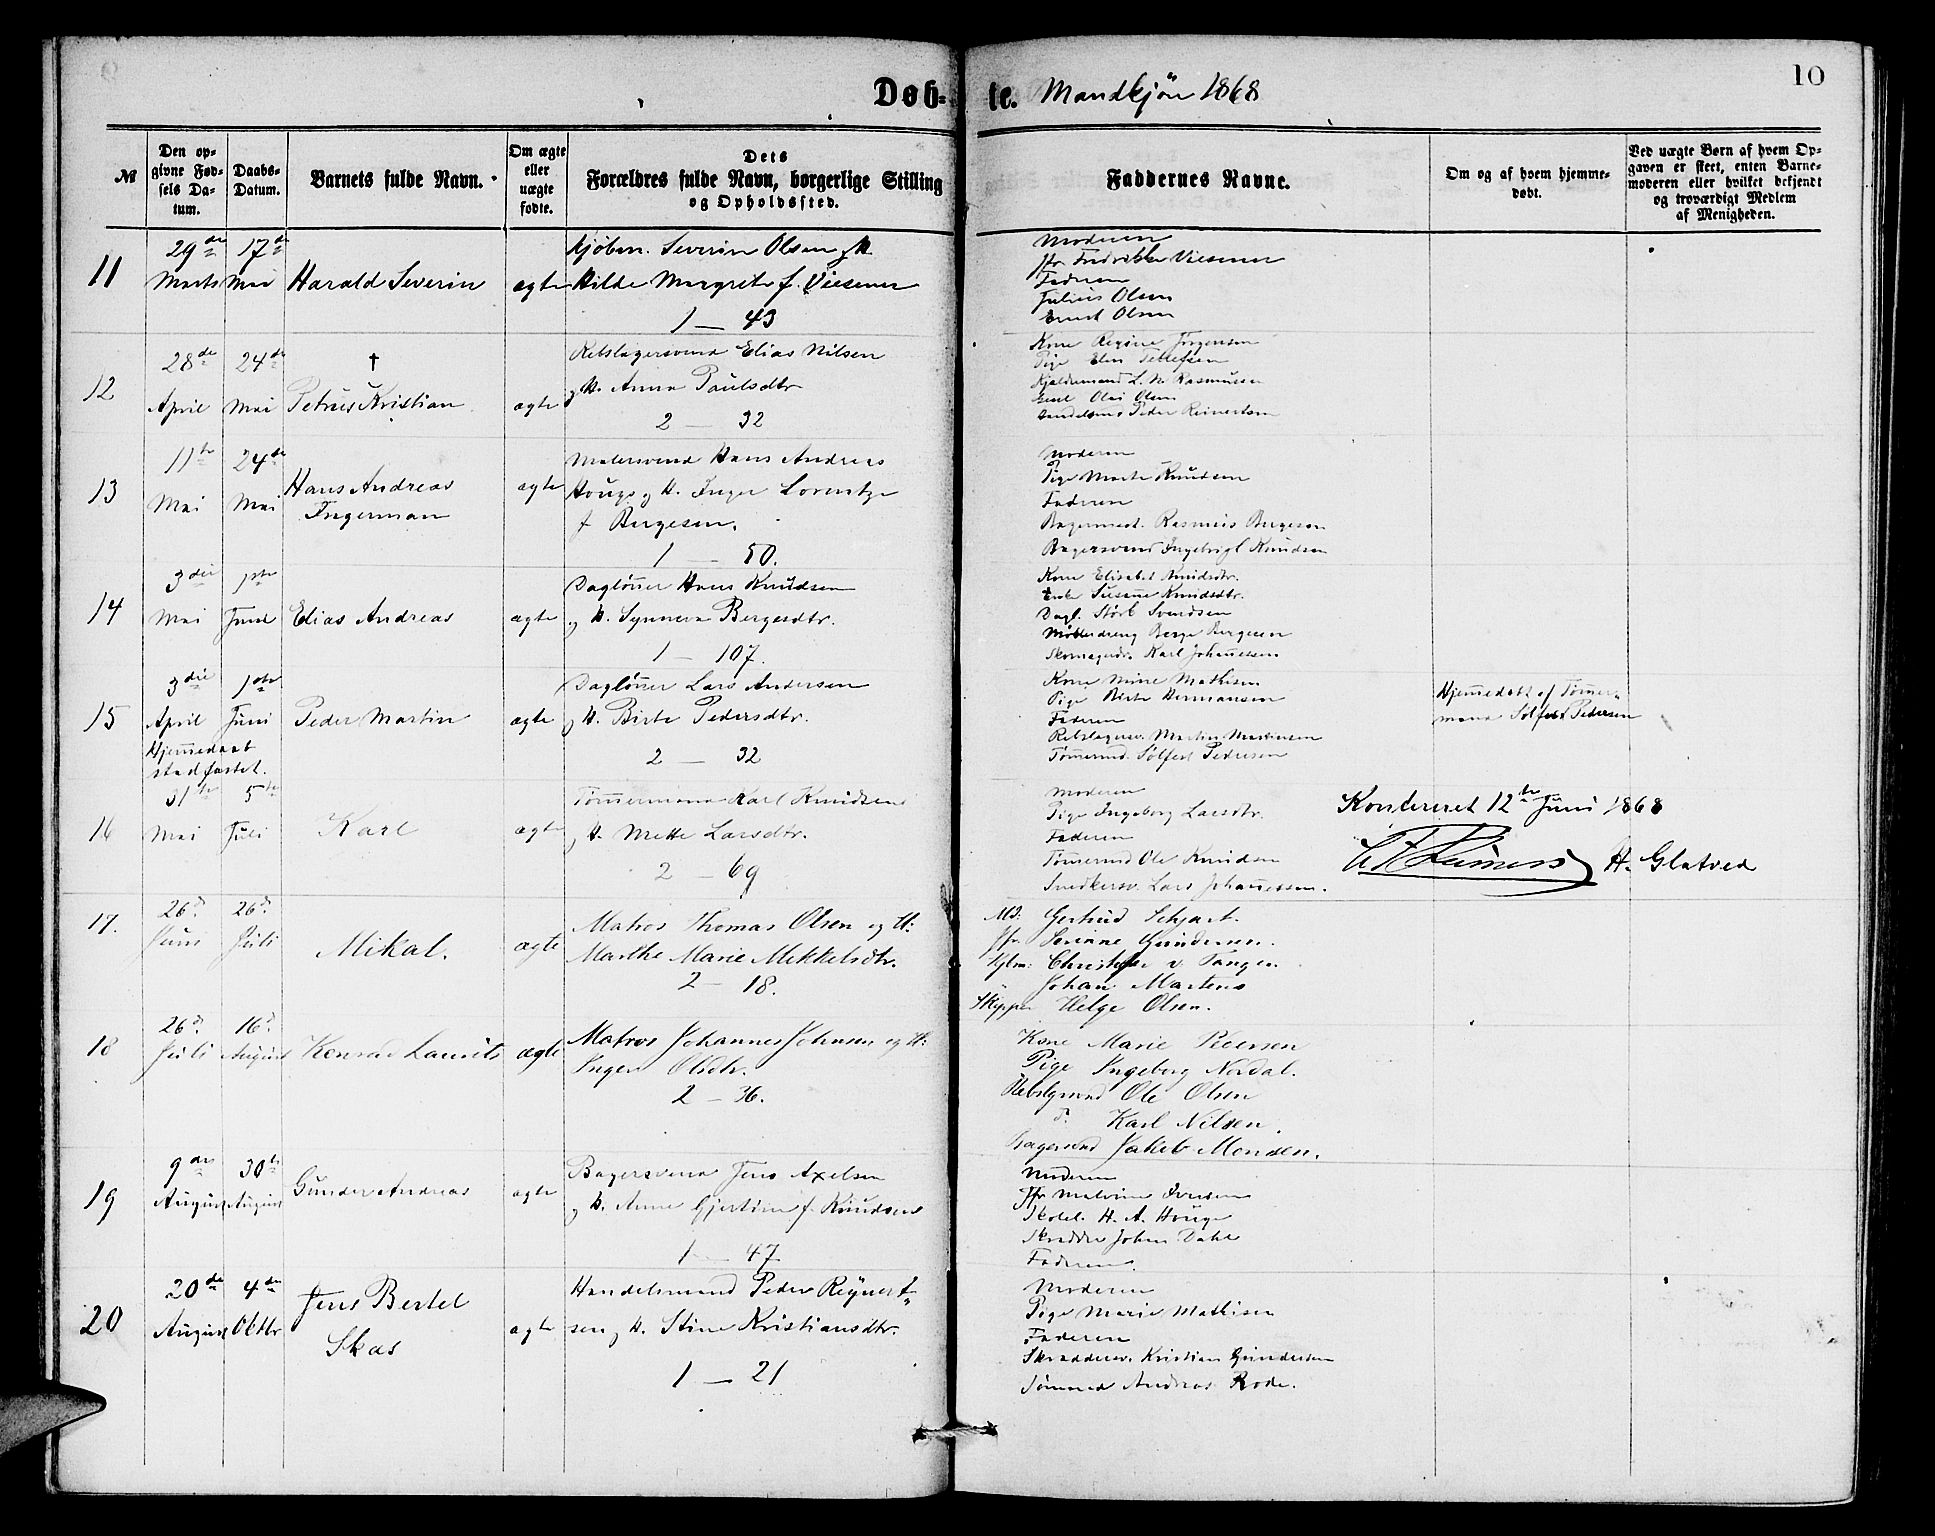 Døb=te. Mandkjön 1868
10
№
Den op=
givne Fød=
sels Da=
tum.
Daabs=
Datum.
Barnets fulde Navn.
Om ægte
eller
uægte
fødte.
Dets
Forældres fulde Navn, borgerlige Stilling
og Opholdssted.
Faddernes Navne.
Om og af hvem hjemme=
døbt.
Ved uægte Børn af hvem Op=
gaven er skeet, enten Barne=
moderen eller hvilket bekjendt
og troværdigt Medlem
af Menigheden.
11
29de
Marts
17de
Mai
Harald Severin
ægte
Kjøbm. Severin Olsen og H.
Hilde Margrete f. Viesener
1 — 43
Moderen
Jfr Viesener
Faderen
Julius Olsen
Ernst Olsen
12
28de
April
24de
Mai
†
Petrus Kristian
ægte
Rebslagersvend Elias Nilsen
og H. Anna Paulsdtr
2 — 32
Kone Regine Jörgensen
Pige Elen Tellefsen
L. N. Rasmussen
Olai Olsen
Peder Reinertsen
13
11te
Mai
24de
Mai
Hans Andreas
Ingerman
ægte
Malersvend Hans Andreas
Houge og H. Inger Lorentze
f Bergesen.
1 — 50.
Moderen
Pige Marte Knudsen
Faderen
Bagermest. Rasmus Bergesen
Bagersvend Ingebrigt Knudsen
14
3die
Mai
1ste
Juni
Elias Andreas
ægte
Daglönner Hans Knudsen
og H. Synneva Bergesdtr.
1 — 107.
Kone Elisabet Amundsdtr.
Enke Susanne Knudsdtr.
Dagl. Störk Svendsen
Möllerdreng Berge Bergesen
Skomagerdr. Karl Johannessen
15
3die
April
1ste
Juni
Hjemmedaab
stadfæstet.
Peder Martin
ægte
Daglönner Lars Andersen
og H. Birte Pedersdtr.
2 — 32
Kone Mine Mathisen
Pige Birte Hermansen
Faderen
Rebslagersv. Martin Martinsen
Tömmermd. Sölfest Pedersen
Hjemmedøbt af Tömmer=
mand Sølfest Pedersen
16
31te
Mai
5te
Juli
Karl
ægte
Tömmermand Karl Knudsen
og H. Mette Larsdtr.
2 — 69
Moderen
Pige Ingeborg Larsdtr.
Faderen
Tömmermd Ole Knudsen
Snedkersv. Lars Johannessen.
Konfereret 12te Juni 1868
H. Glatved
17.
26d.
Juni
26d.
Juli
Mikal.
ægte
Matros Thomas Olsen og H:
Marthe Marie Mekkelsdtr.
2 — 18.
Md. Gertrud Schjart.
Jfr. Serinne Gundersen.
Kjbm: Christoffer v. Tangen.
Johan Martens
Skipper Helge Olsen.
18
26d.
Juli
16d.
August
Konrad Laurits
ægte
Matros Johannes Johnsen og H:
Inger Olsdtr.
2 — 36.
Kone Marie Pedersen
Pige Ingeborg Nordal.
Ole Olsen
d. Karl Nilsen.
Bagersvend Jakob Monsen.
19
9de
August
30te
August
Gunder Andreas
ægte
Bagersvend Jens Axelsen
og H. Anne Gjertine f. Knudsen
1 — 47
Moderen
Jfr Malvine Iversen
Skolel. H. A. Houge
Skrædder Johan Dahl
Faderen.
20
20de
August
4de
Oktbr
Jens Bertel
Skas
ægte
Handelsmand Peder Reynert=
sen og H. Stine Kristiansdtr.
1 — 21
Moderen
Pige Marie Mathisen
Faderen
Skræddersv. Kristian Gundersen
Sömand Andreas Rode.